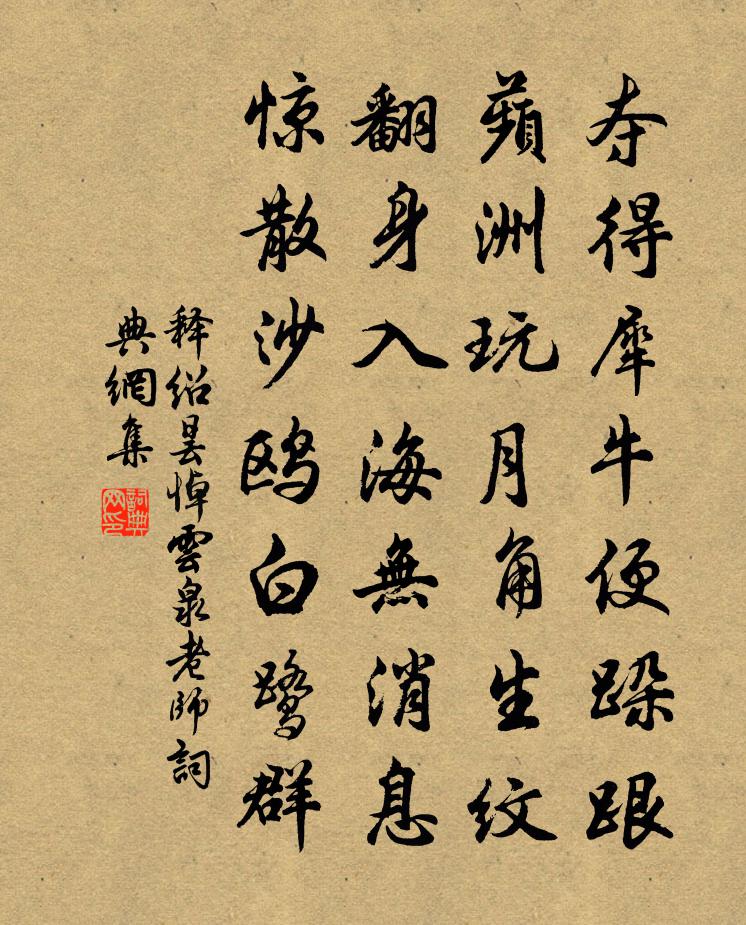 夺得犀牛便跺跟
蘋洲玩月角生纹
翻身入海無消息
惊散沙鸥白鹭群
释绍昙悼雲泉老师詞
典網集
詞典
网印